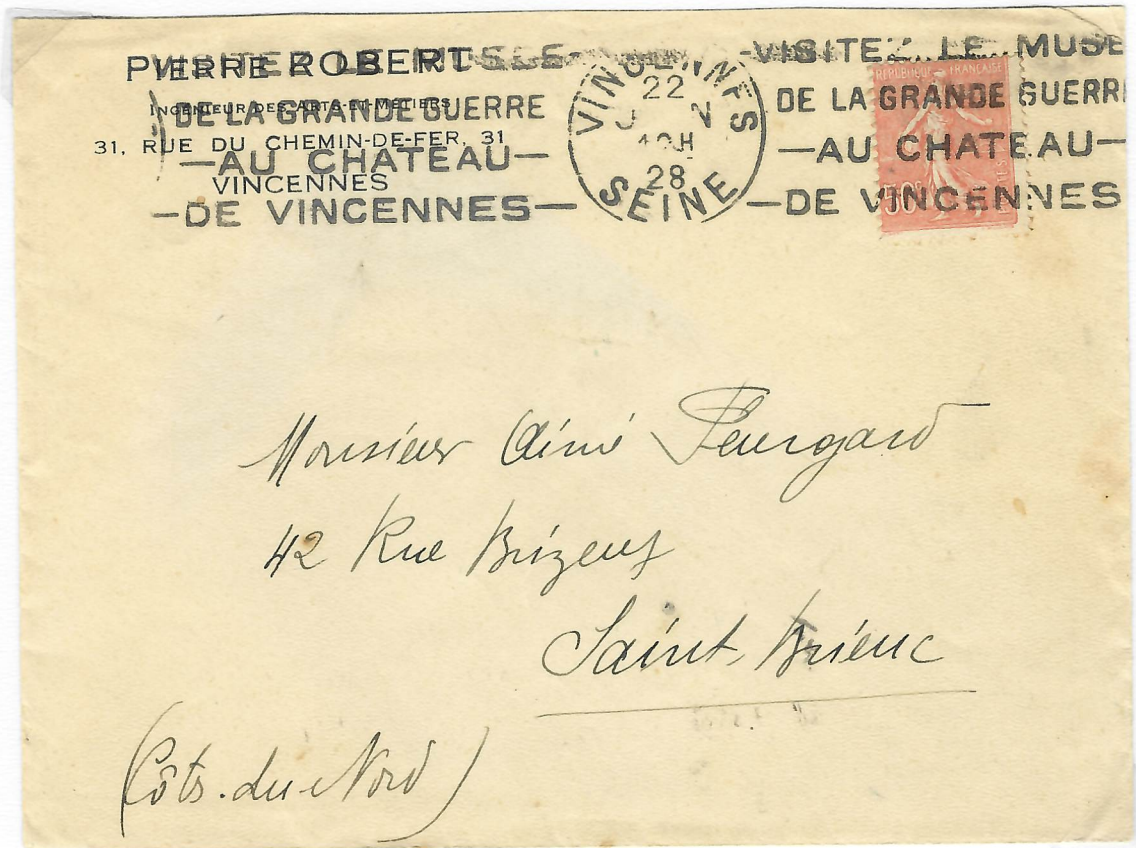 PIERRE ROBERT
INGÉNIEUR DES ARTS-ET-MÉTIERS
31, RUE DU CHEMIN-DE-FER, 31
VINCENNES
VISITEZ LE MUSEE
DE LA GRANDE GUERRE
—AU CHATEAU—
—DE VINCENNES—
VINCENNES
22
28
SEINE
-VISITEZ LE MUSE
DE LA GRANDE GUERR
—AU CHATEAU—
—DE VINCENNES
REPUBLIQUE FRANÇAISE
50c
Monsieur Aimé
42 Rue Brizeux
Saint-Brieuc
(Côts-du-Nord)